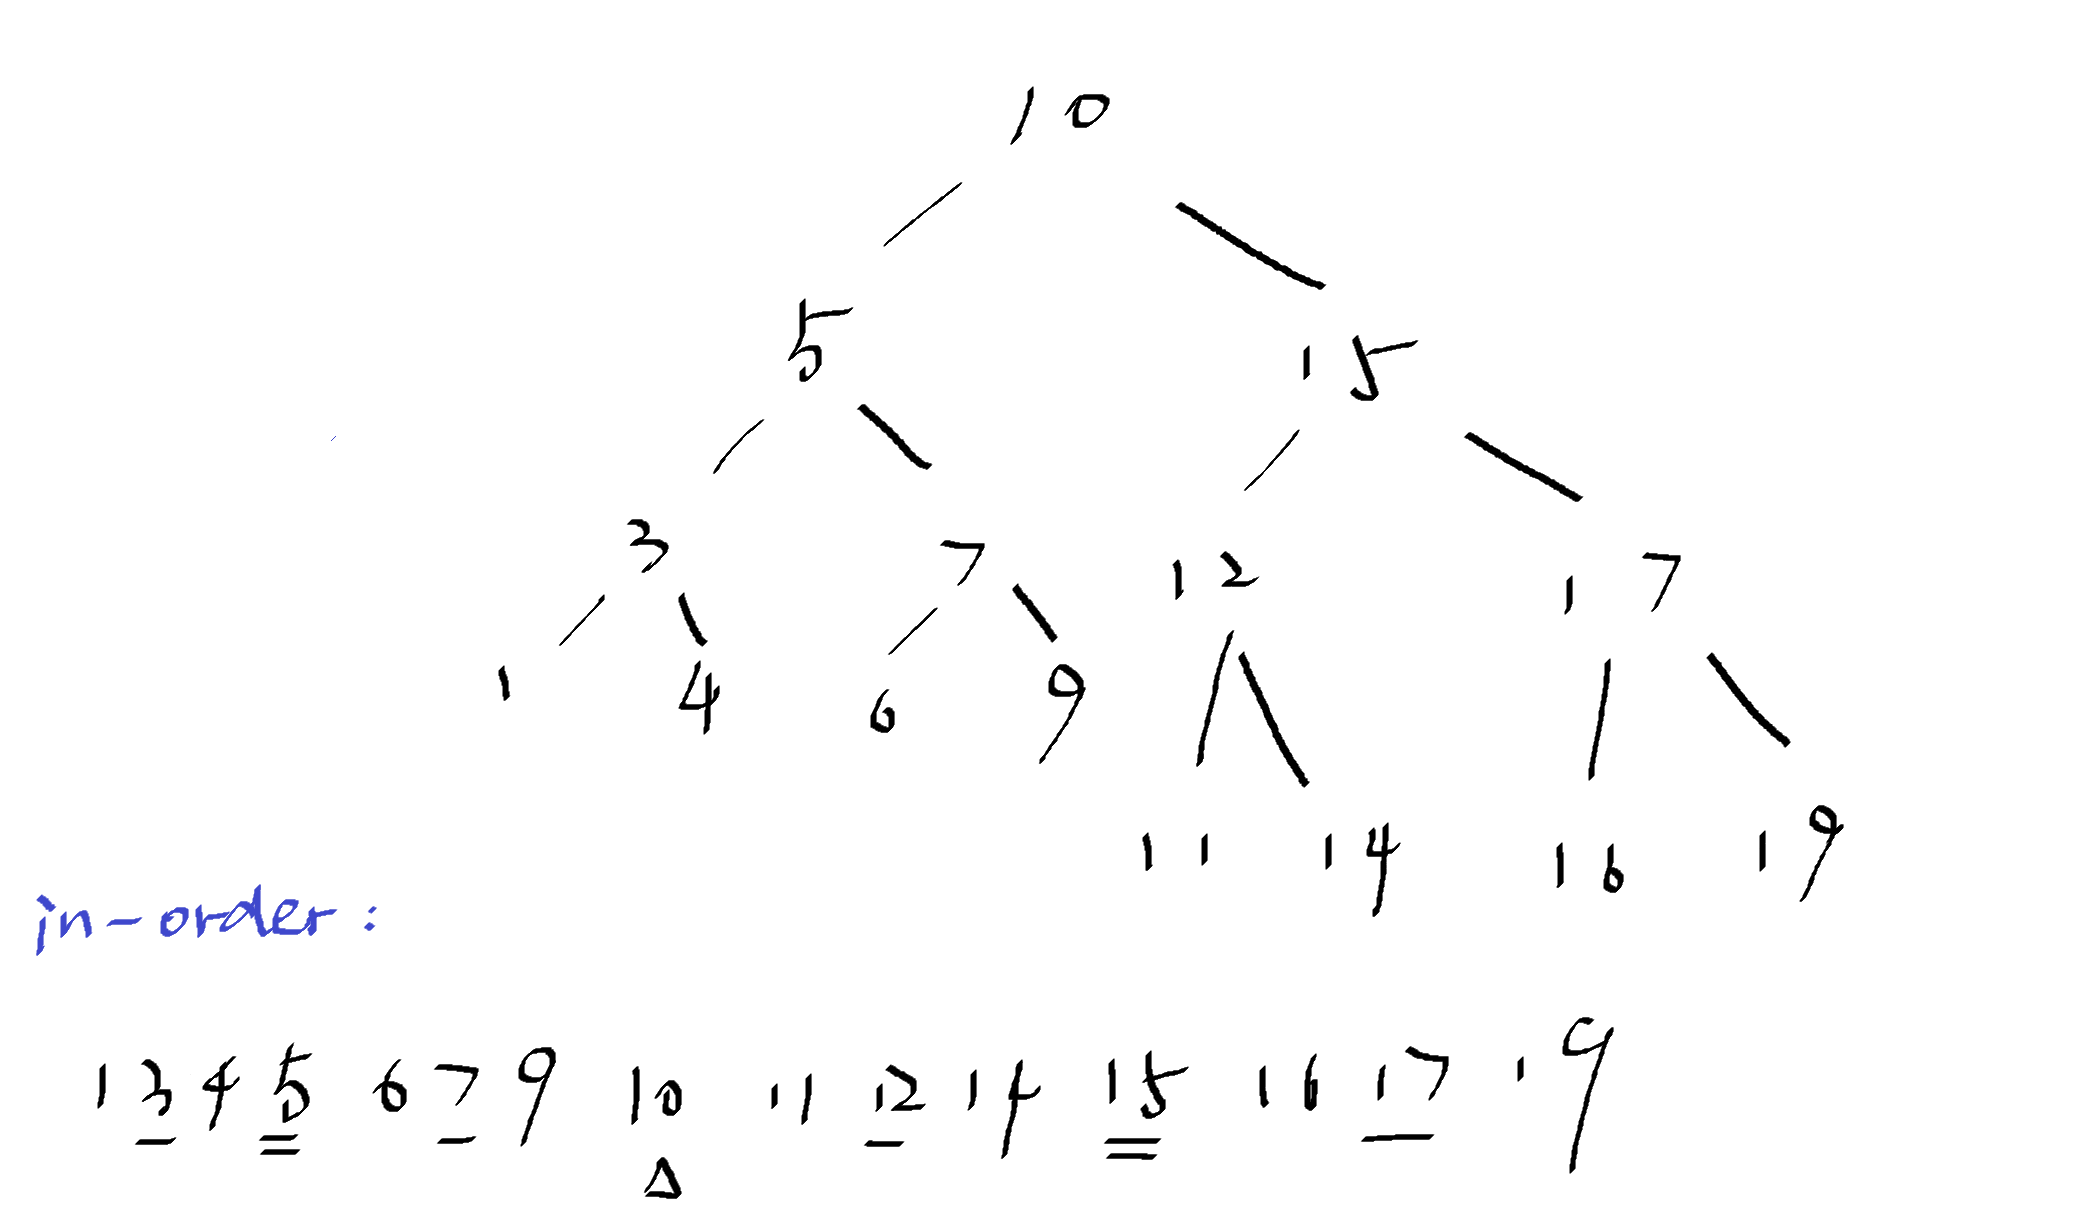 10
5 15
3 7 12 17
1 4 6 9 11 14 16 19
in-order:
1 3 4 5 6 7 9 10 11 12 14 15 16 17 19